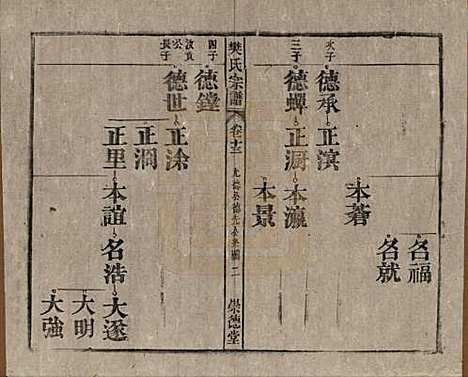 名福
名就
本莟
次子
德承 正濱
三子
德蟬 正溽 本瀛
本景
樊氏宗譜
卷十三
二
崇德堂
四子
德鏜
汝貞公長子
德世 正涂
正澗
正里 本誼 名浩 大遂
大明
大強